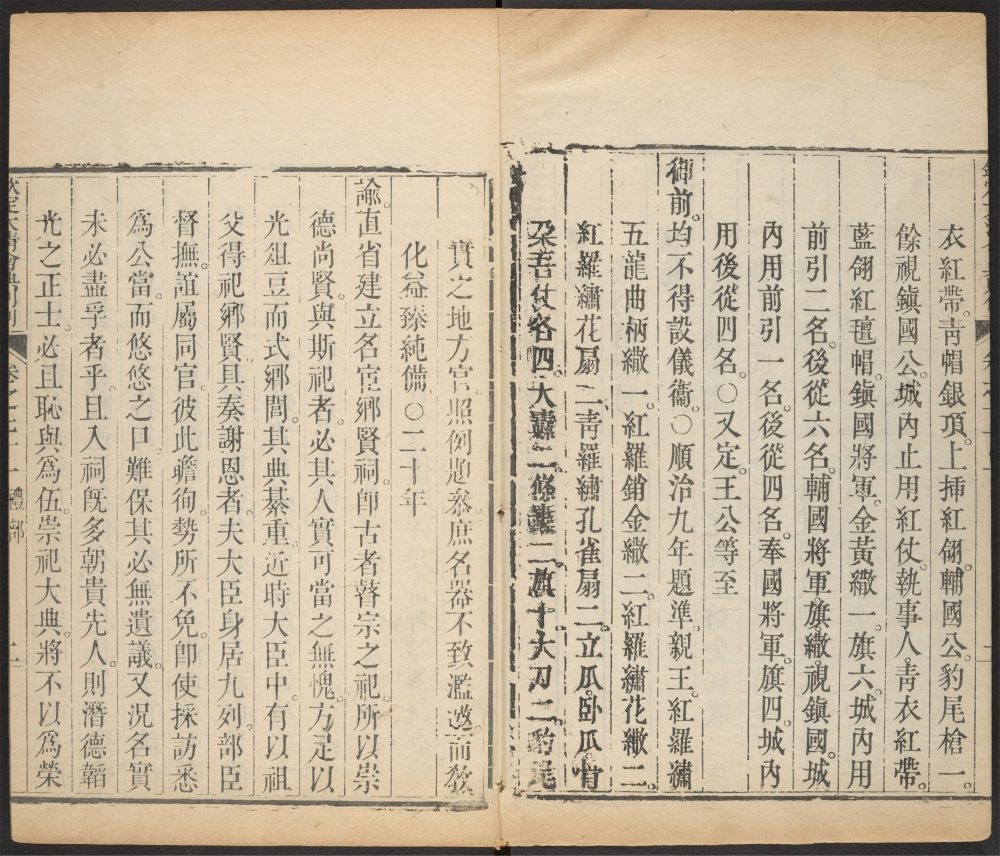 衣紅帶。靑帽銀頂。上揷紅翎。輔國公。豹尾槍一。
餘視鎭國公。城內止用紅仗。執事人。靑衣紅帶。
藍翎紅氊帽。鎭國將軍。金黃繖一。旗六。城內用
前引二名。後從六名。輔國將軍。旗繖。視鎭國。城
內用前引一名。後從四名。奉國將軍。旗四。城內
用後從四名。○又定。王公等至
御前。均不得設儀衞。○順治九年題準。親王。紅羅繡
五龍曲柄繖一。紅羅銷金繖二。紅羅繡花繖二。
紅羅繡花扇二。靑羅繡孔雀扇二。立瓜。卧瓜。骨
朶。吾仗。各四。大纛二。條纛二。旗十。大刀二。豹尾
實之地方官。照例題叅。庶名器不致濫邀。而敎
化益臻純備。○二十年
諭。直省建立名宦鄕賢祠。卽古者瞽宗之祀。所以崇
德尙賢。與斯祀者。必其人實可當之無愧。方足以
光俎豆而式鄕閭。其典綦重。近時大臣中。有以祖
父得祀鄕賢。具奏謝恩者。夫大臣身居九列。部臣
督撫。誼屬同官。彼此瞻徇。勢所不免。卽使採訪悉
爲公當。而悠悠之口。難保其必無遺議。又況名實
未必盡孚者乎。且入祠旣多朝貴先人。則潛德韜
光之正士。必且恥與爲伍。崇祀大典。將不以爲榮
欽定大淸會典則例 卷之七十一 禮部